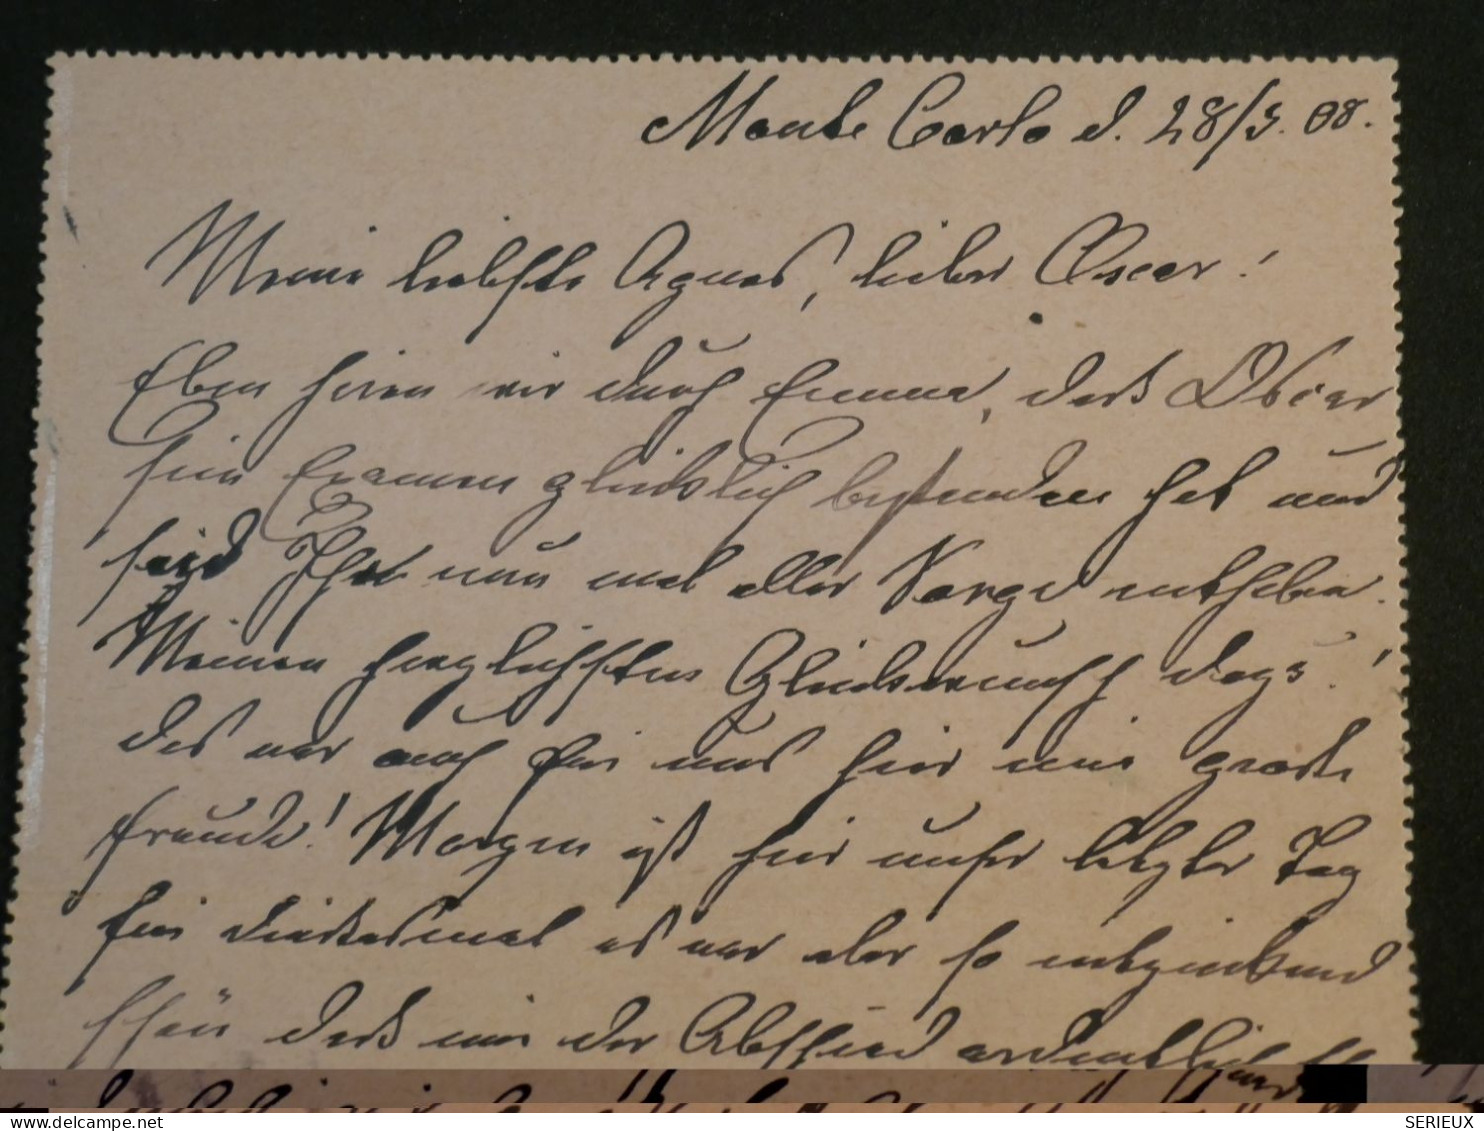 Monte Carlo d. 28/3. 08.
Meine liebste Agnes, lieber Oscar!
Eben hören wir durch Emma, daß Oscar
sein Examen glücklich bestanden hat und
seid Ihr nun mal aller Sorge enthoben.
Meinen herzlichsten Glückwunsch dazu!
das war auch für uns hier eine große
Freude! Morgen ist hier unser letzter Tag
für diesesmal es war aber so entzückend
schön daß mir der Abschied ordentlich
delcampe.net
SERIEUX